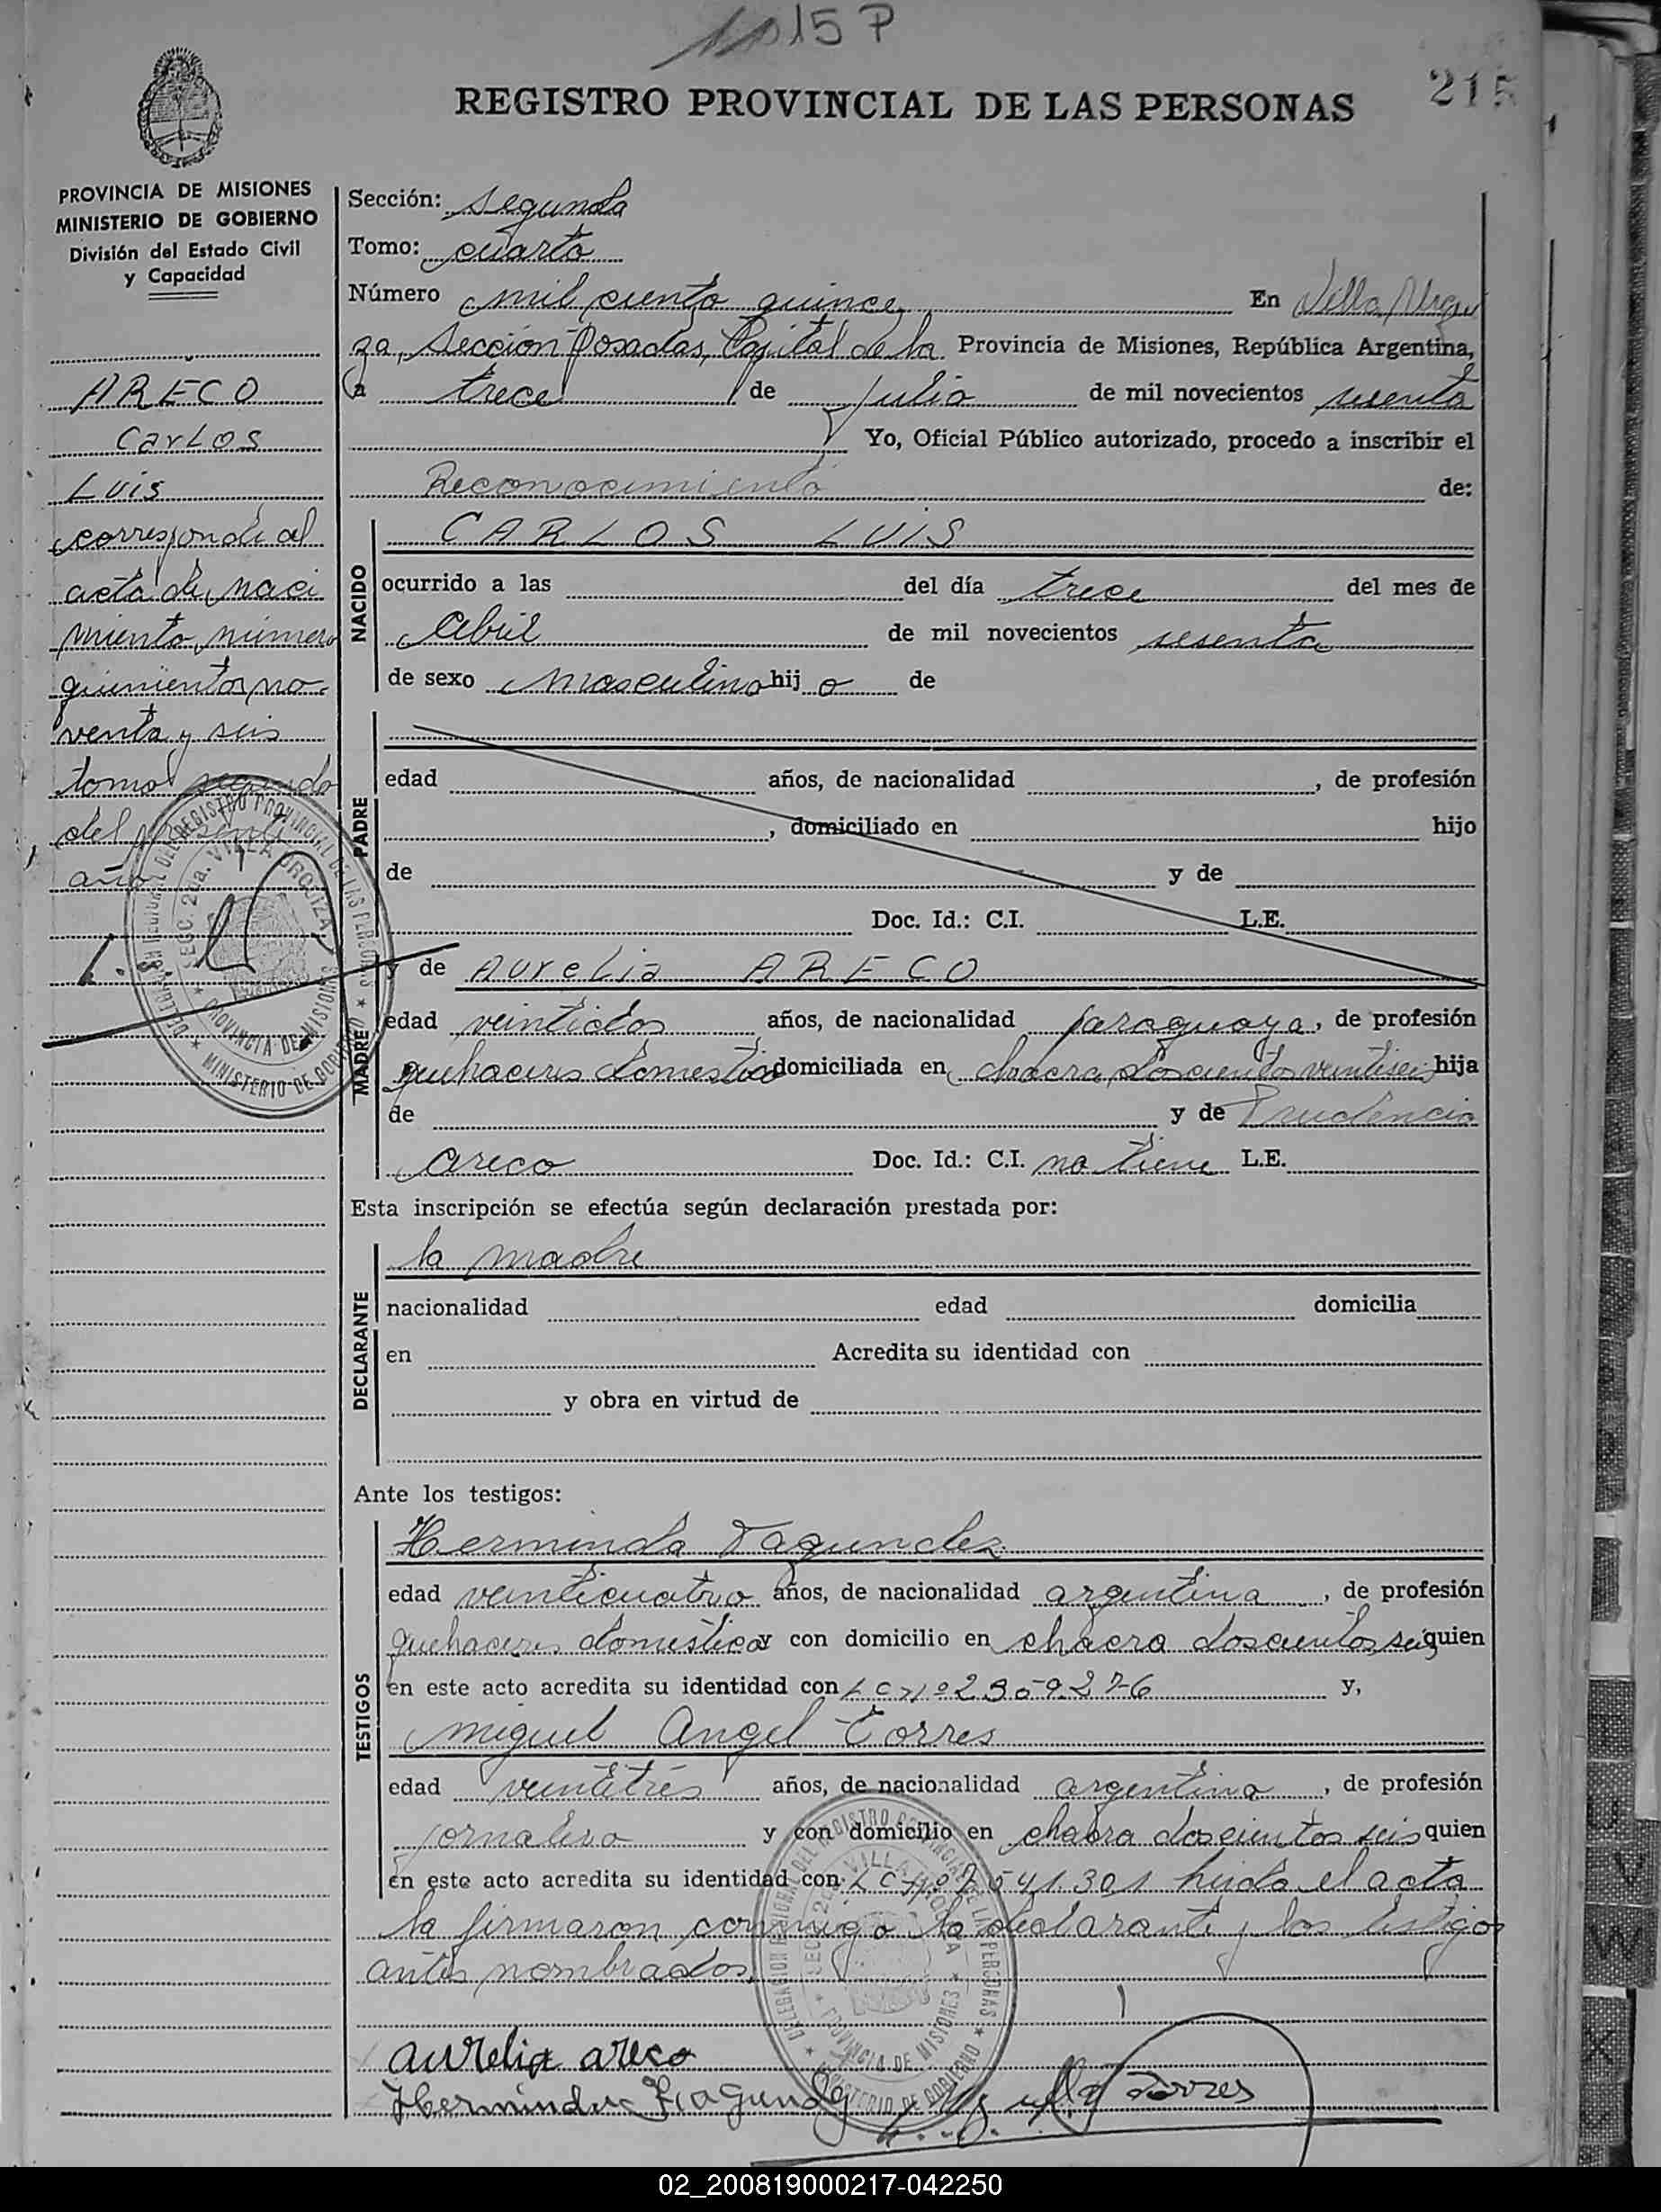 1115 P
215
REGISTRO PROVINCIAL DE LAS PERSONAS
PROVINCIA DE MISIONES
MINISTERIO DE GOBIERNO
División del Estado Civil
y Capacidad
ARECO
Carlos
Luis
corresponde al
acta de naci
miento número
quinientos no-
venta y seis
tomo segundo
del presente
año
Sección: segunda
Tomo: cuarto
Número mil ciento quince En Villa Urqui
za, Sección Posadas, Capital de la Provincia de Misiones, República Argentina,
a trece de Julio de mil novecientos sesenta
Yo, Oficial Público autorizado, procedo a inscribir el
Reconocimiento de:
NACIDO
CARLOS LUIS
ocurrido a las del día trece del mes de
Abril de mil novecientos sesenta
de sexo masculino hij o de
PADRE
edad años, de nacionalidad , de profesión
, domiciliado en hijo
de y de
Doc. Id.: C.I. L.E.
MADRE
y de Aurelia ARECO
edad veintidos años, de nacionalidad paraguaya, de profesión
quehaceres domesticos domiciliada en chacra doscientos veintiseis hija
de y de Prudencia
Areco Doc. Id.: C.I. no tiene L.E.
Esta inscripción se efectúa según declaración prestada por:
DECLARANTE
la madre
nacionalidad edad domicilia
en Acredita su identidad con
y obra en virtud de
Ante los testigos:
TESTIGOS
Herminda Fagundez
edad veinticuatro años, de nacionalidad argentina, de profesión
quehaceres domesticos y con domicilio en chacra doscientos seis quien
en este acto acredita su identidad con L C Nº y,
Miguel Angel Torres
edad veintitrés años, de nacionalidad argentina, de profesión
jornalero y con domicilio en chacra doscientos seis quien
en este acto acredita su identidad con leida el acta
la firmaron conmigo la declarante y los testigos
antes nombrados.
aurelia areco
Herminda Fragundez
Torres
DELEGACION REGIONAL DEL REGISTRO PROVINCIAL DE LAS PERSONAS
SECC. 2da. VILLA URQUIZA
PROVINCIA DE MISIONES
MINISTERIO DE GOBIERNO
02_200819000217-042250